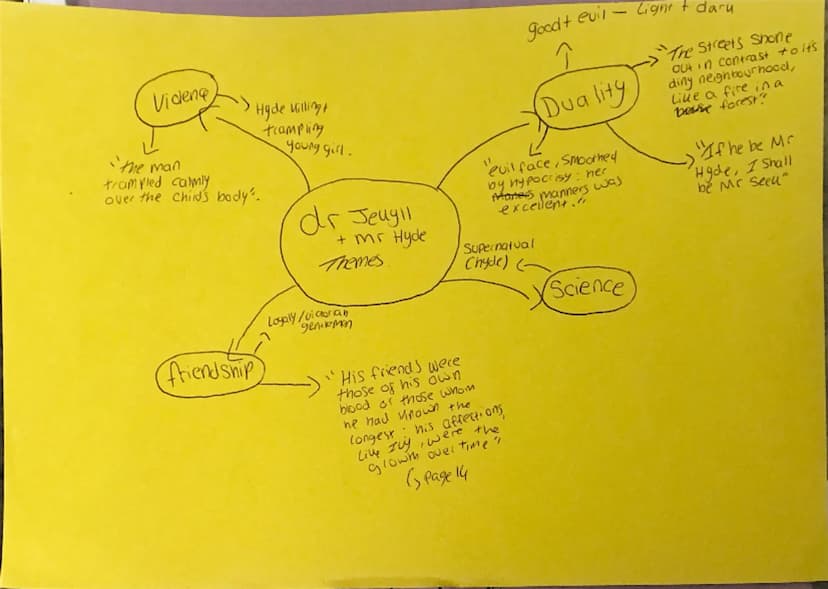 good + evil – Light + dark
Duality
"The Streets Shone
out in contrast to it's
diny neighbourhood,
Like a fire in a
forest."
"If he be Mr
Hyde, I Shall
be Mr Seek"
"evil face, Smoothed
by hypocrisy: her
manners was
excellent."
Violence
Hyde killing +
trampling
young girl.
"the man
trampled calmly
over the child's body".
dr Jekyll
+ mr Hyde
Themes
Supernatual
(hyde)
Science
Loyaly/victorian
gentleman
friendship
"His friends were
those of his own
blood or those whom
he had known the
Longest: his affections,
Like Ivy, were the
growth over time"
↳ page 14